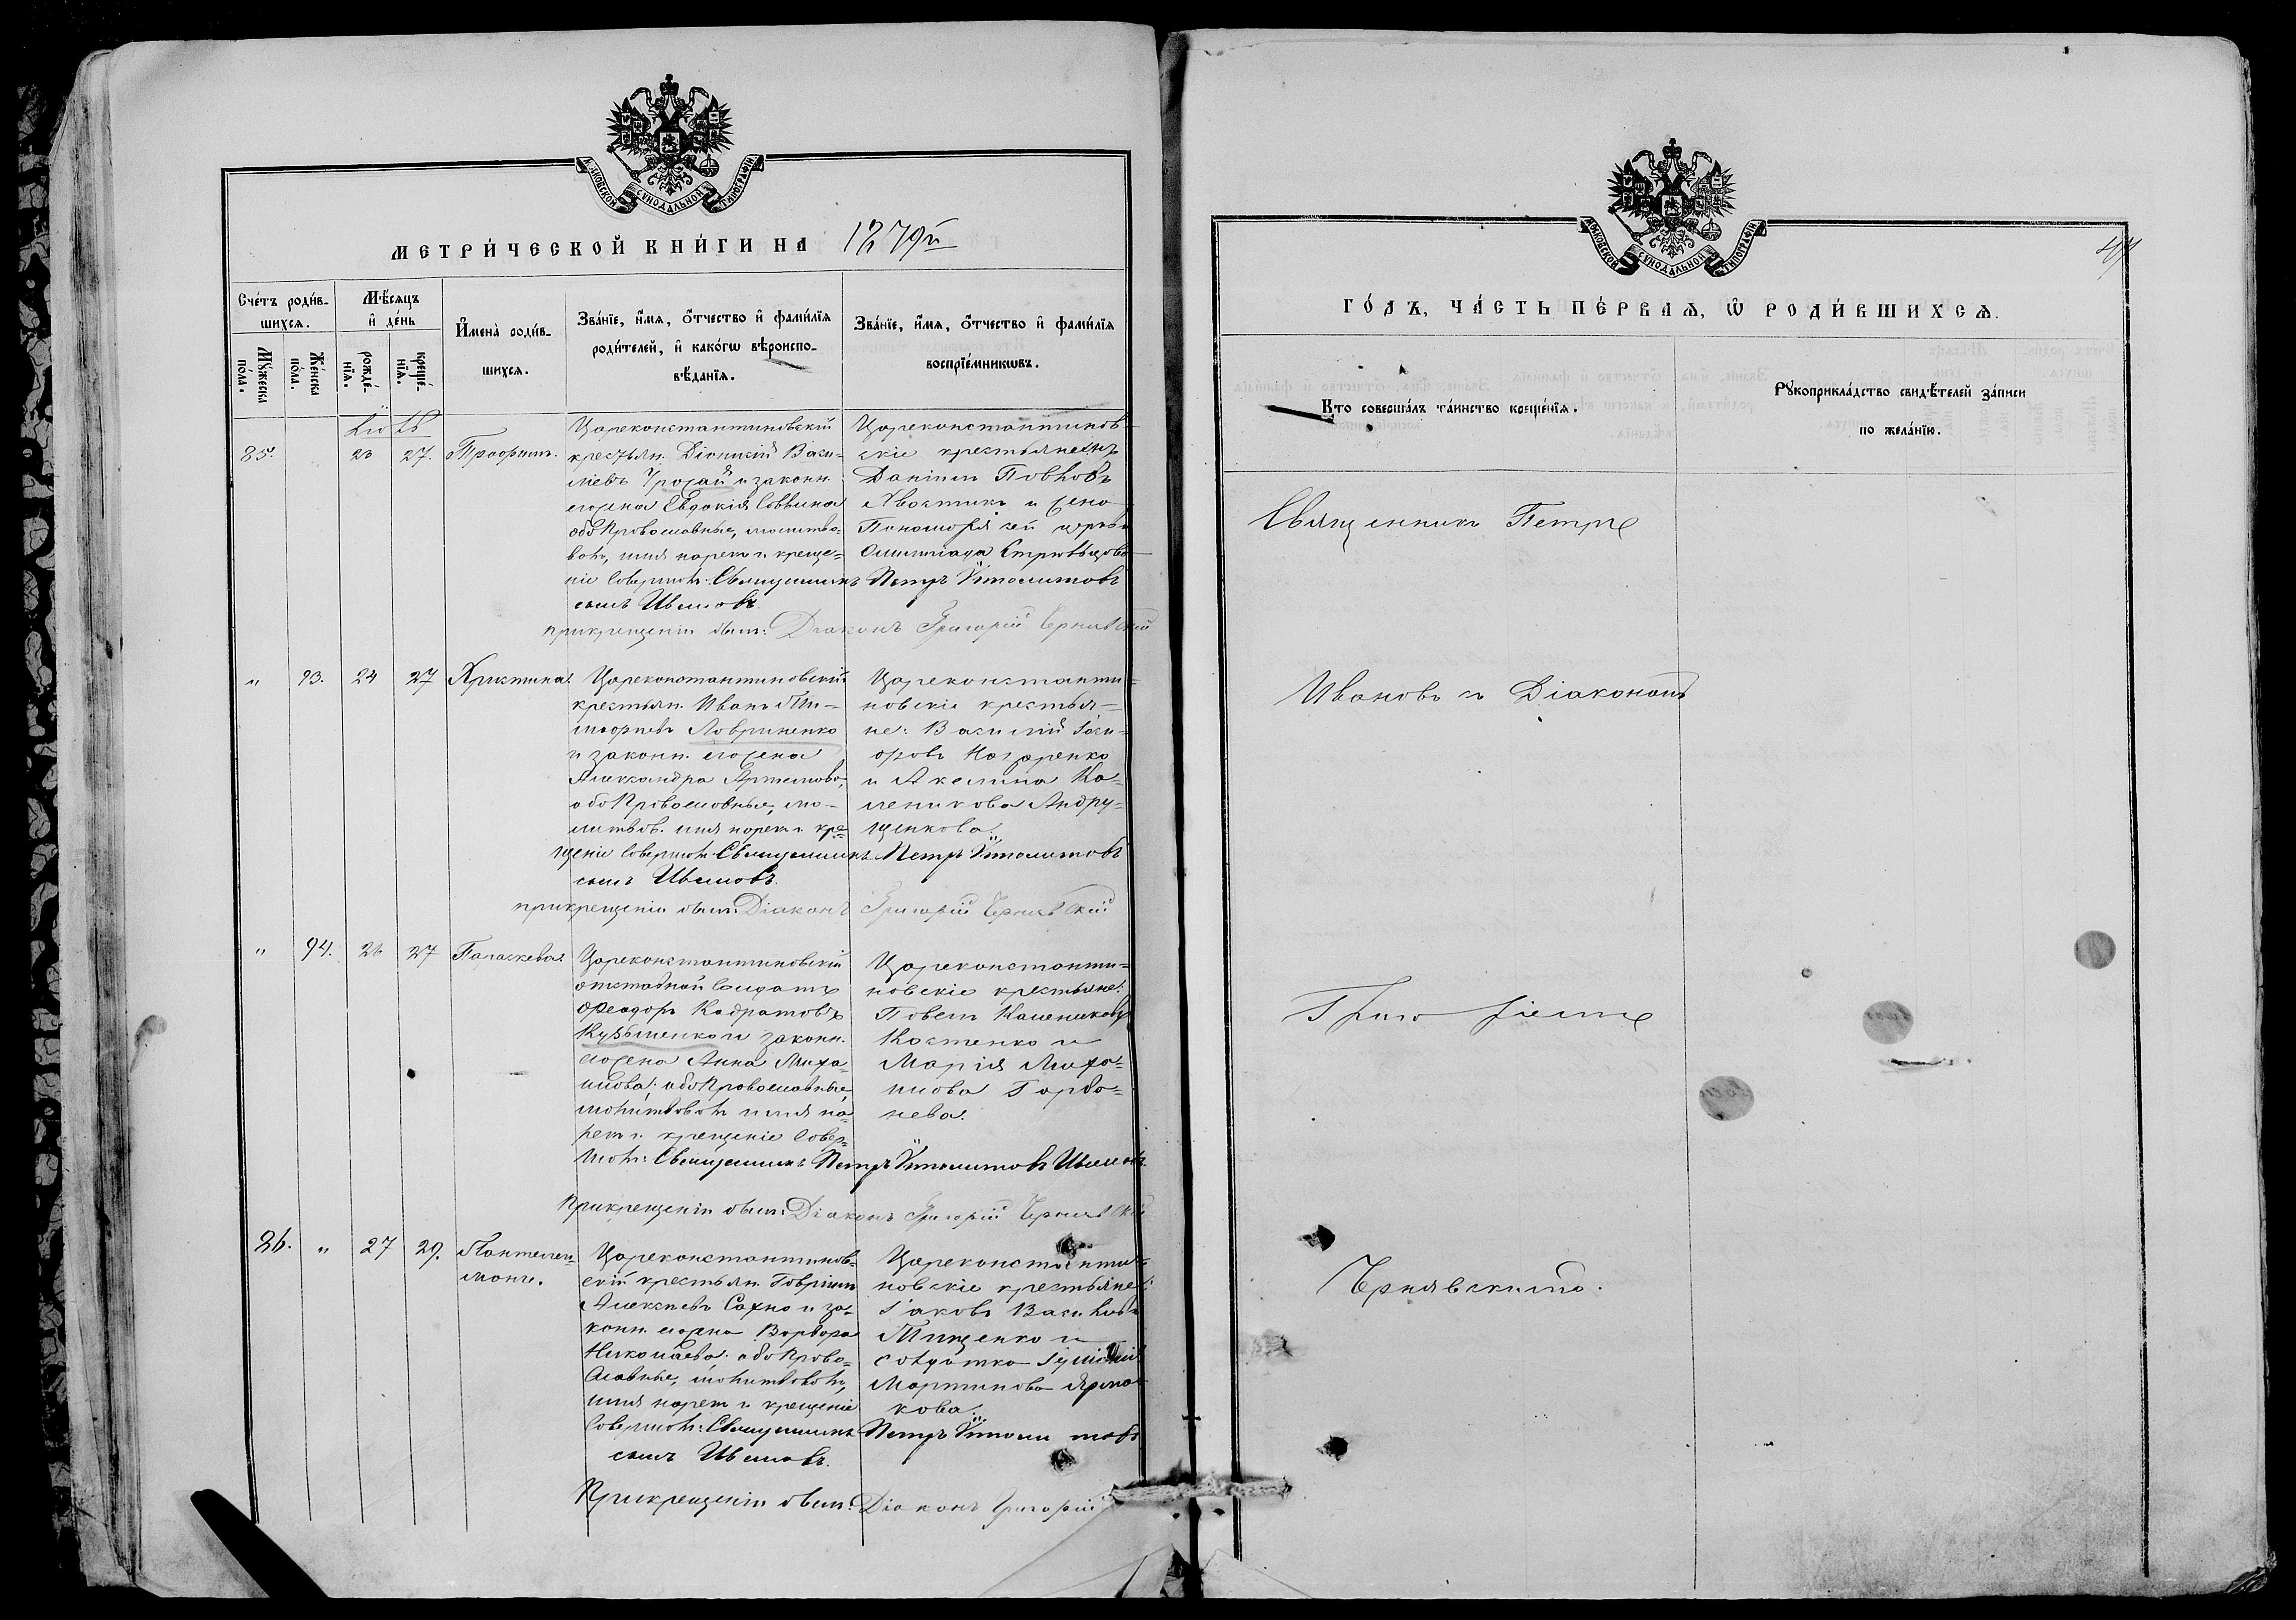 МОСКОВСКОЙ СѴНОДАЛЬНОЙ ТИПОГРАФІИ
МЕТРИ́ЧЕСКОЙ КНИ́ГИ НА 1879й
Сче́тъ роди́в-
шихся.
Мѣ́сяцъ
и҆ де́нь
Мꙋ́жеска
по́ла.
Же́нска
по́ла.
рожде́-
нїѧ.
креще́-
нїѧ.
И҆мена̀ роди́в-
шихсѧ.
Зва́нїе, и҆́мѧ, ѻ҆́тчество и҆ фами́лїѧ
роди́телей, и҆ како́гѡ вѣроиспо-
вѣ́данїѧ.
Зва́нїе, и҆́мѧ, ѻ҆́тчество и҆ фами́лїѧ
воспрїе́мникѡвъ.
85. 23 27.
Цареконстантиновскій
крестьян. Діонисій Васи-
ліевъ и законн.
его жена Евдокія Саввина
оба Православные, молитво-
валъ, имя нарекъ и креще-
ніе совершилъ: Священникъ Петръ Ипполитовъ
сынъ Ивановъ.
Цареконстантинов-
скіе крестьяне:
Даніилъ Павловъ
Хвостикъ и жена
Пономаря сей церкви
Олимпіада
при крещеніи былъ: Діаконъ Григорій Чернявскій
„ 93. 24 27 Христина.
Цареконстантиновскій
крестьян. Иванъ Ти-
моѳіевъ Лавриненко
и законн. его жена
Александра Артемова,
оба Православные, мо-
литвов. имя нарекъ и кре-
щеніе совершилъ Священникъ Петръ Ипполитовъ
сынъ Ивановъ.
Цареконстанти-
новскіе крестья-
не: Василій
и Акилина Ка-
леникова Андру-
щенкова.
при крещеніи былъ: Діаконъ Григорій Чернявскій
„ 94. 26 27 Параскева.
Цареконстантиновскій
отставной Солдатъ
Ѳеодоръ Кодратовъ
Кузьменко и законн.
его жена Анна Миха-
илова; оба Православные,
молитвовалъ имя на-
рекъ и крещеніе совер-
шилъ: Священникъ Петръ Ипполитовъ Ивановъ.
Цареконстанти-
новскіе крестьяне:
Павелъ Калениковъ
Костенко и
Марія Миха-
илова Горба-
нева.
При крещеніи былъ: Діаконъ Григорій Чернявскій
86. „ 27 29. Пантелеи-
монъ.
Цареконстантинов-
скій крестьян. Гавріилъ
Алексіевъ Сахно и за-
конн. его жена Варвара
Николаева: оба Право-
славные, молитвовалъ,
имя нарекъ и крещеніе
совершилъ: Священникъ Петръ Ипполитовъ
сынъ Ивановъ.
Цареконстанти-
новскіе крестьяне:
Іаковъ Васильевъ
Тищенко и
солдатка
Мартинова
кова.
При крещеніи былъ: Діаконъ Григорій
МОСКОВСКОЙ СѴНОДАЛЬНОЙ ТИПОГРАФІИ
ГО́ДЪ, ЧА́СТЬ ПЕ́РВАѦ, Ѡ҆ РОДИ́ВШИХСѦ.
Кто соверша́лъ та́инство креще́нїѧ.
Рꙋкоприкла́дство свидѣ́телей за́писи
по жела́нїю.
Священникъ Петръ
Ивановъ съ Діакономъ
Григоріемъ
Чернявскимъ.